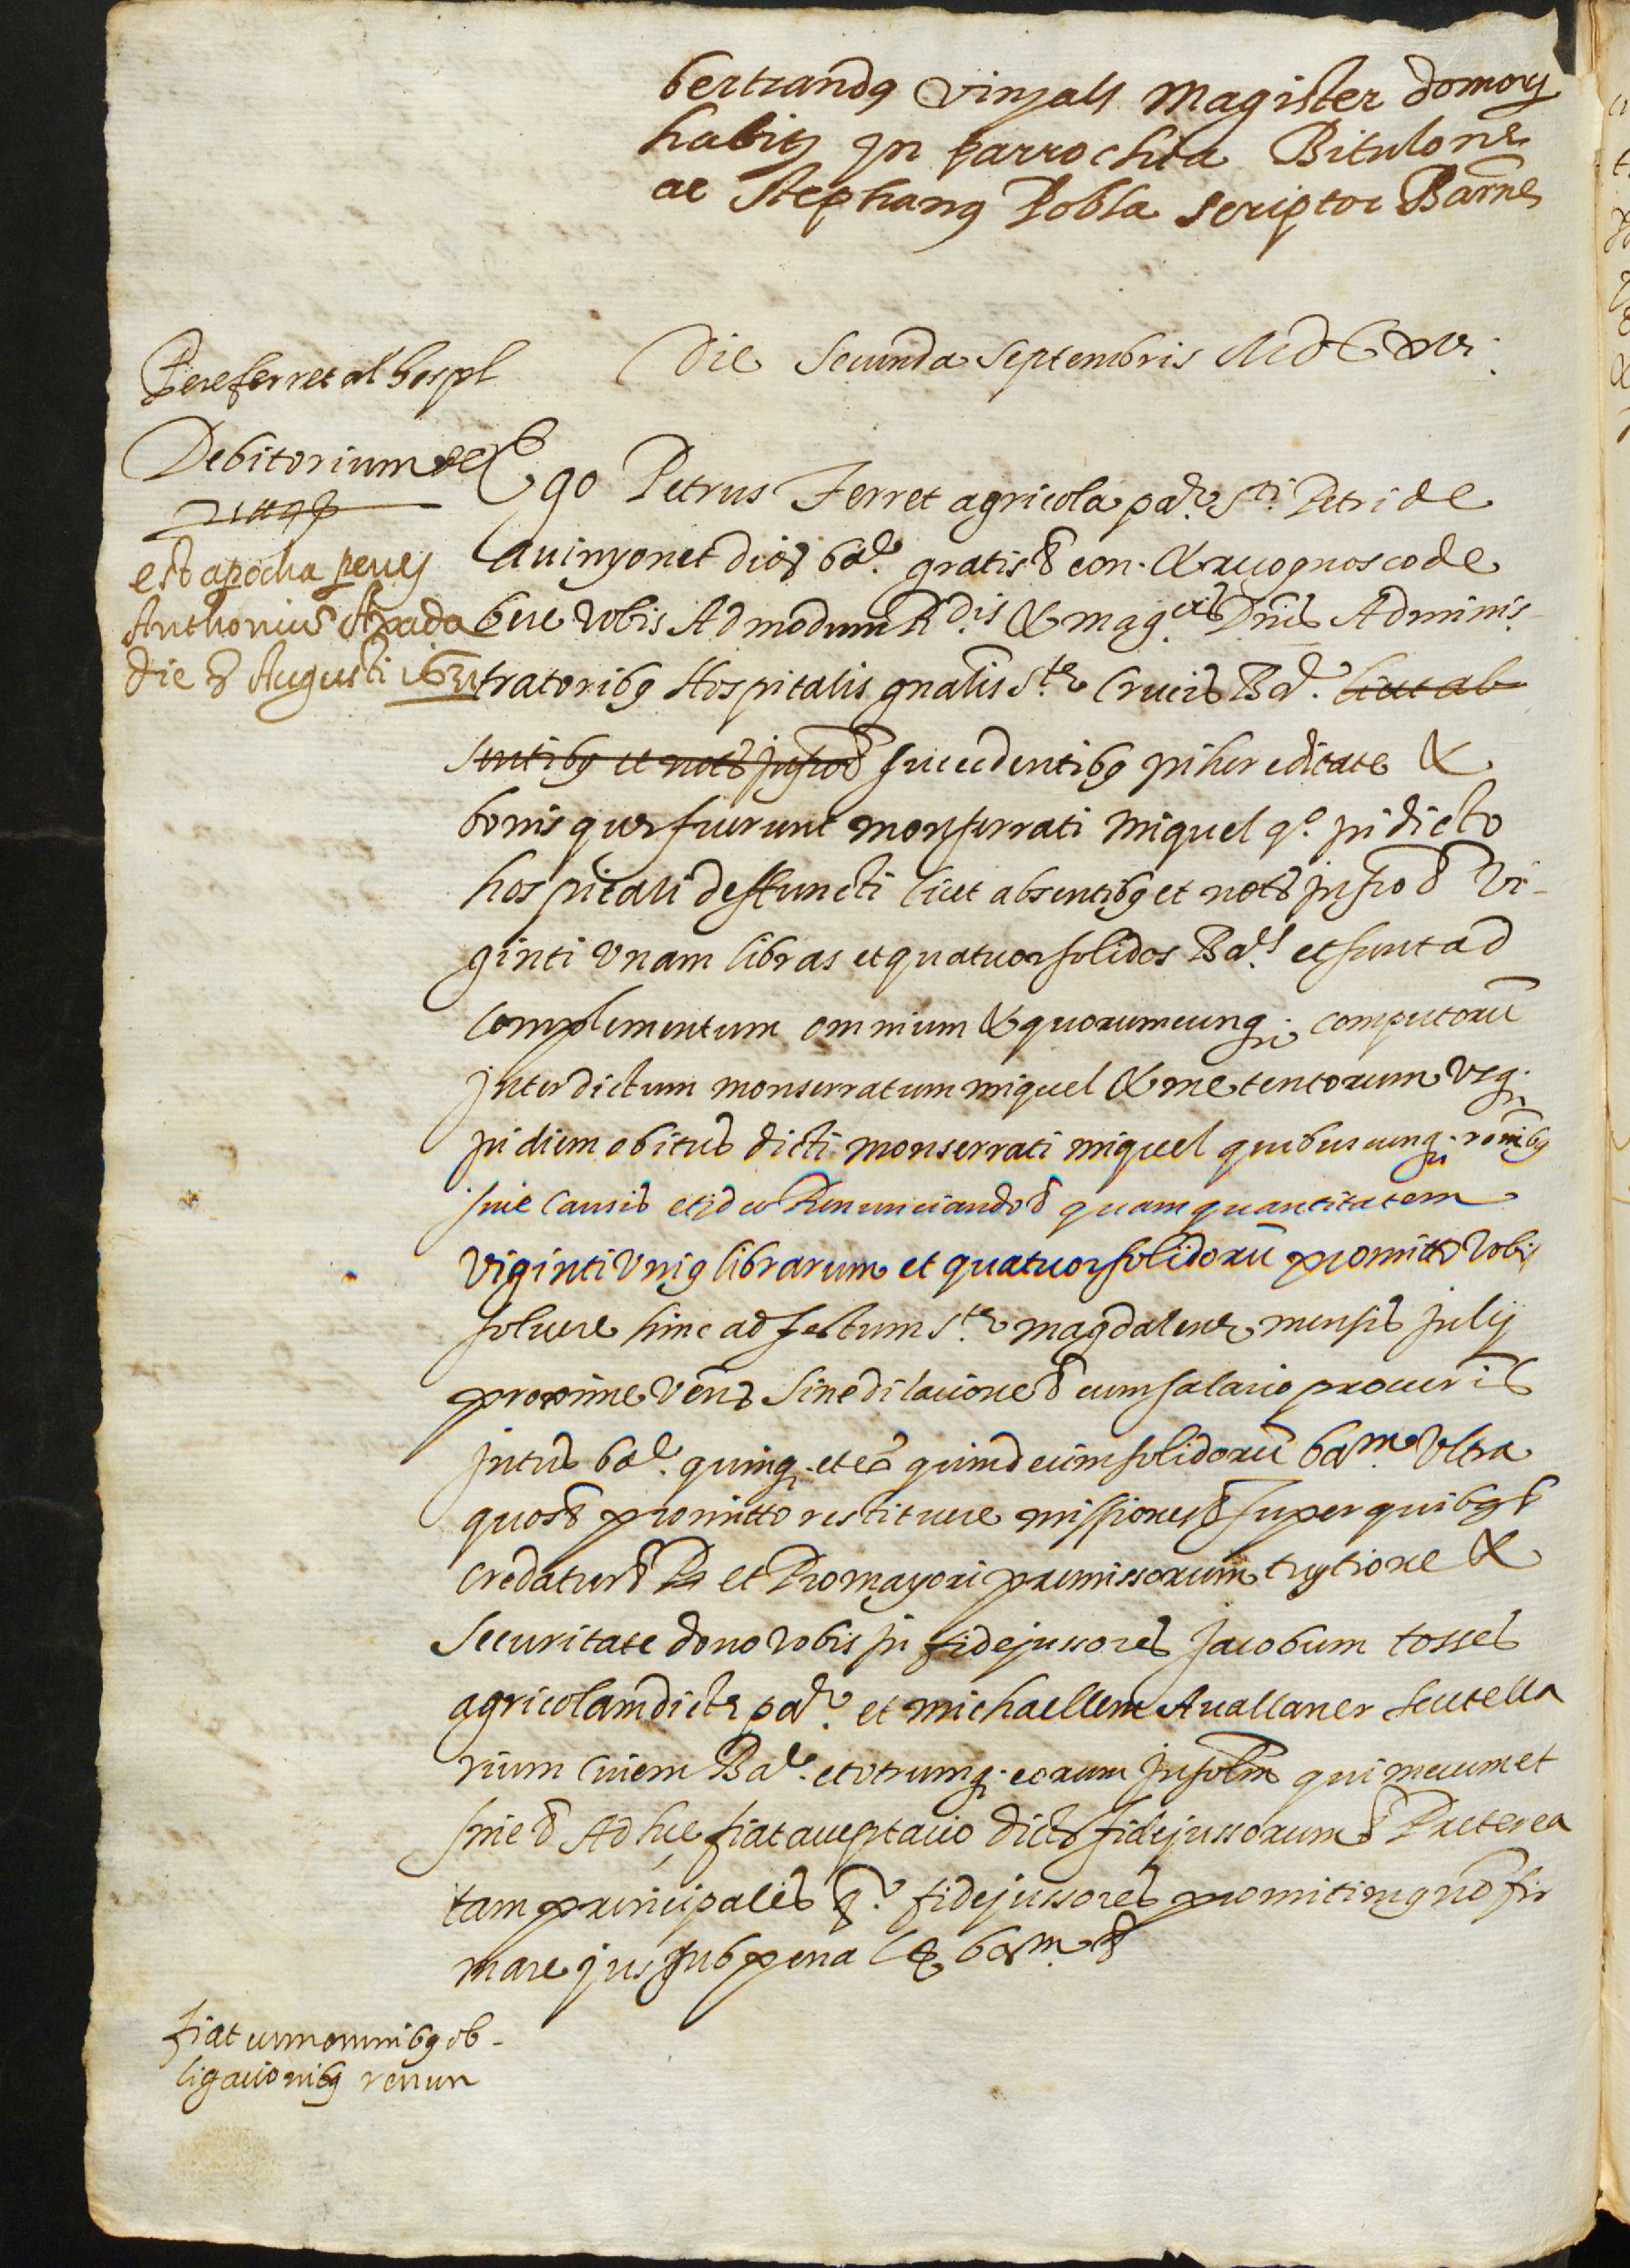 bertrandꝰ vinyals Magister domorꝫ
habitꝫ in parrochia Bitulone
ac Stephanꝰ Pobla scriptor Barne
Die Secunda Septembris
Pere ferret al hospl
Debitorium de
est apocha penes
Anthonius
die 8 Augusti
Ego Petrus Ferret agricola pae. Sti. Petri de
Avinyonet dioc̃ bae. gratis & con. & recognosco de
bere vobis Admodum Rdis & magcis Dnis Adminis-
tratoribꝰ Hospitalis gñalis Ste Crucis Bae. licet ab
sentibꝰ et noto infro & succedentibꝰ in hereditate &
bonis que fuerunt monserrati miquel qo. in dicto
hospitali deffuncti licet absentibꝰ et noto infro & vi-
ginti unam libras et quatuor solidos Baes et sunt ad
complementum omnium & quorumcunqꝫ computorũ
inter dictum monserratum miquel & me tentorum usqꝫ
in diem obitus dicti monserrati miquel quibuscunqꝫ ronibꝰ
sive causis et ideo Renunciando & quam quantitatem
viginti uniꝰ librarum et quatuor solidorũ promitto vobis
solvere hinc ad festum Ste magdalene mensis julij
proxime venz sine dilacione & cum salario procuris
intus bae. quinqꝫ et ex̃ quindecim solidorũ bam. ultra
quos & promitto restituere missiones & super quibꝰ &
credatur & Et Pro mayori premissorum tuytione &
securitate dono vobis in fidejussores Jacobum tosses
agricolam dicte pae. et michaellem Avallaner scutella
rium civem Bae. et utrumqꝫ eorum insolm qui mecum et
sine & Ad hec fiat acceptacio dictoꝫ fidejussorum & Preterea
tam principales qe. fidejussores promitimꝰ nõ fir
mare jus sub pena bam. &
fiat cum omnibꝰ ob-
ligacionibꝰ renun